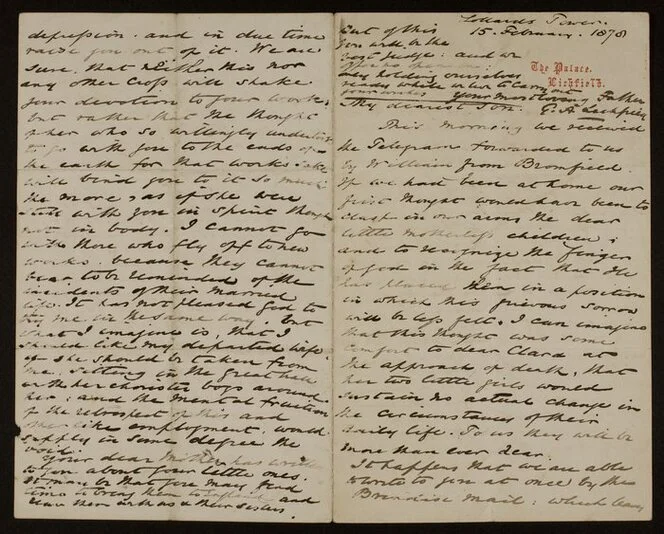 Lollards Tower.
15. February. 1878
The Palace.
Lichfield.
My dearest Son.
This morning we received
the Telegram forwarded to us
by William from Bromfield.
If we had been at home our
first thought would have been to
clasp in our arms the dear
little motherless children;
and to recognize the finger
of God in the fact that He
has placed them in a position
in which this grievous sorrow
will be less felt. I can imagine
that this thought was some
comfort to dear Clara at
the approach of death, that
her two little girls would
sustain no actual change in
the circumstances of their
daily life. To us they will be
more than ever dear.
It happens that we are able
to write to you at once by the
Brindisi Mail: which leaves
depression. and in due time
raise you out of it. We are
sure, that neither this nor
any other Cross will shake
your devotion to your work:
but rather that the thought
of her who so willingly undertook
to go with you to the ends of
the earth for that work's sake
will bind you to it so much
the more, as if she were
still with you in spirit though
not in body. I cannot go
with those who fly off to new
works. because they cannot
bear to be reminded of the
incidents of their married
life. It has not pleased God to
try me in the same way. but
what I imagine is, that I
should like my departed wife
if she should be taken from
me. sitting in the great hall
with her chorister boys around
her: and the mental fruition
of the retrospect of this and
other like employment, would
supply in some degree the
void.
Your dear Mother has written
to you about your little ones.
It may be that you may find
time to bring them to England and
leave them with us & their sisters.
But of this
you will be the
best judge: and we
holding ourselves
ready to carry out
your wishes Your most loving Father
G. A. Lichfield